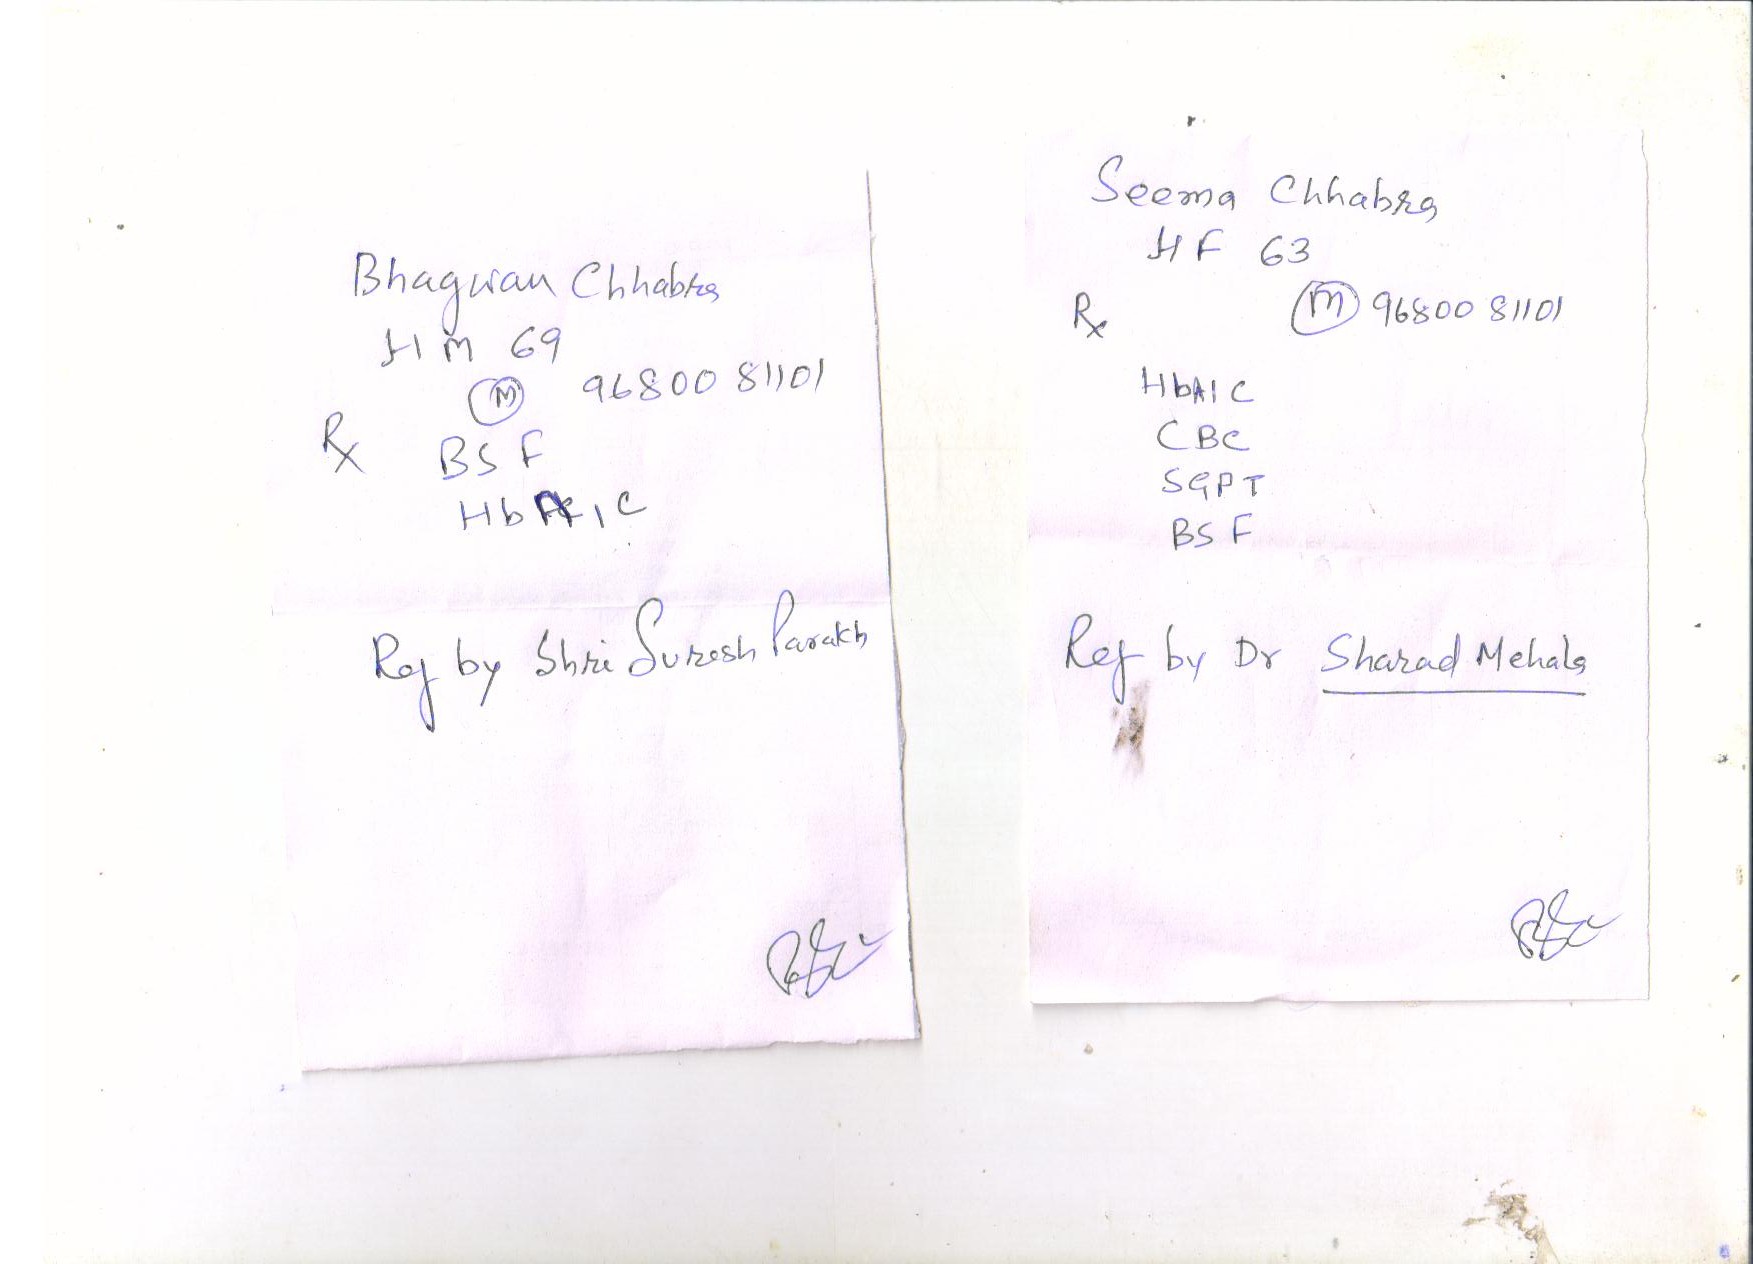 Bhagwan Chhabra
HM 69
M 96800 81101
Rx BSF
HbA1C
Ref by Shri Suresh Parakh
Seema Chhabra
HF 63
Rx M 96800 81101
HbA1C
CBC
SGPT
BSF
Ref by Dr Sharad Mehala